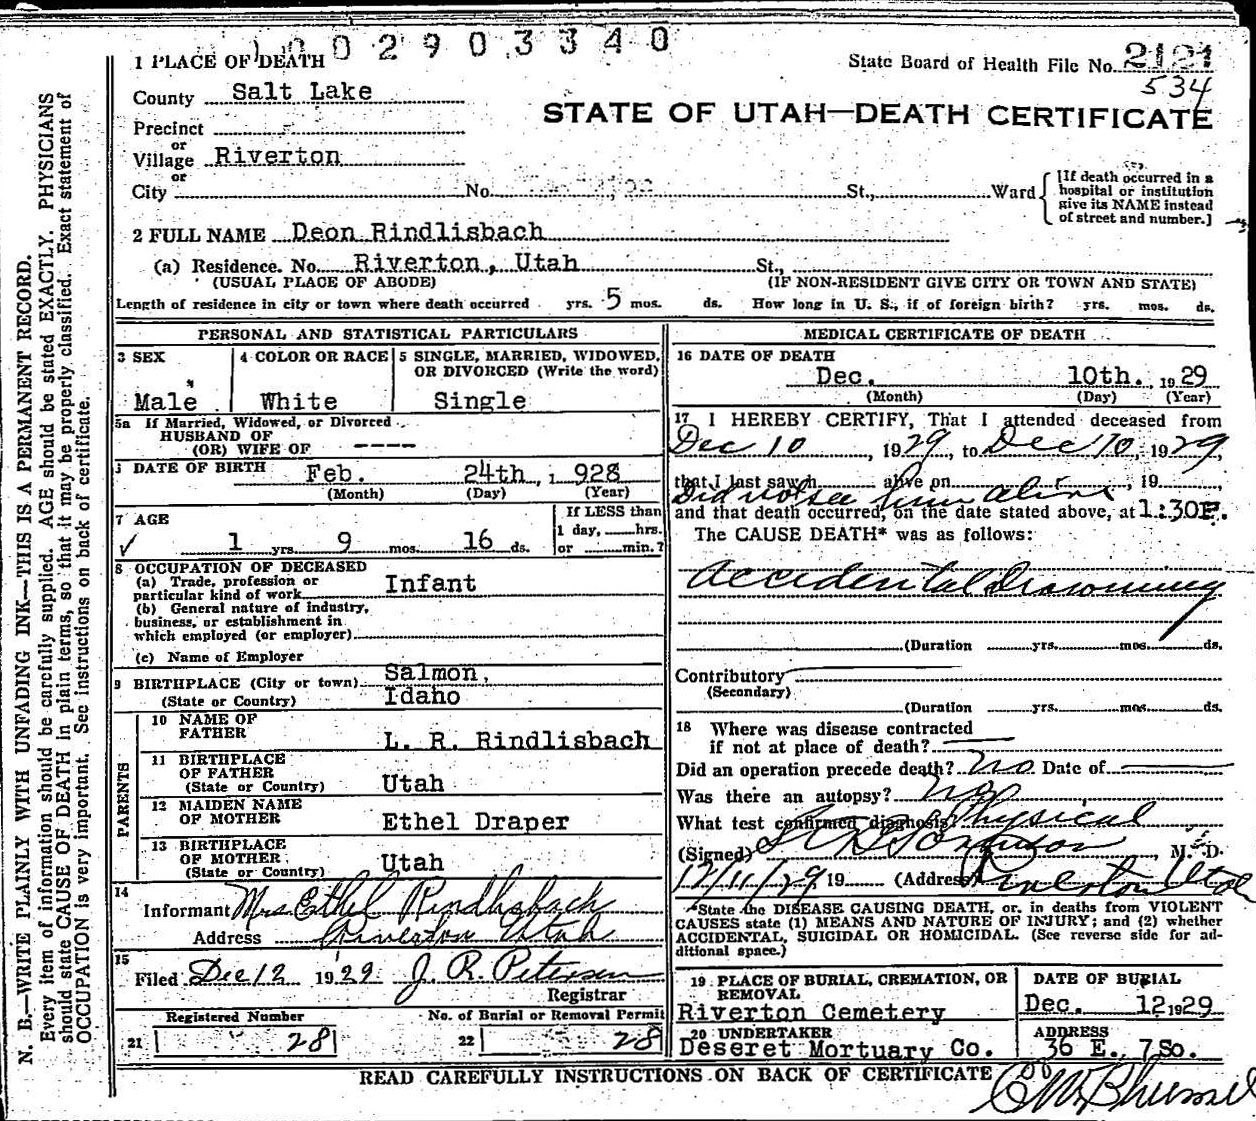 1 0 0 2 9 0 3 3 4 0
State Board of Health File No. 2121
534
STATE OF UTAH—DEATH CERTIFICATE
1 PLACE OF DEATH
County Salt Lake
Precinct
or
Village Riverton
or
City No. St., Ward
[If death occurred in a
hospital or institution
give its NAME instead
of street and number.]
2 FULL NAME Deon Rindlisbach
(a) Residence. No. Riverton, Utah St.,
(USUAL PLACE OF ABODE) (IF NON-RESIDENT GIVE CITY OR TOWN AND STATE)
Length of residence in city or town where death occurred yrs. 5 mos. ds. How long in U. S., if of foreign birth? yrs. mos. ds.
PERSONAL AND STATISTICAL PARTICULARS
3 SEX
Male
4 COLOR OR RACE
White
5 SINGLE, MARRIED, WIDOWED,
OR DIVORCED (Write the word)
Single
5a If Married, Widowed, or Divorced
HUSBAND OF
(OR) WIFE OF ----
DATE OF BIRTH Feb. 24th, 1 928
(Month) (Day) (Year)
7 AGE
✓ 1 yrs. 9 mos. 16 ds.
If LESS than
1 day, hrs.
or min.?
8 OCCUPATION OF DECEASED
(a) Trade, profession or
particular kind of work Infant
(b) General nature of industry,
business, or establishment in
which employed (or employer)
(c) Name of Employer
9 BIRTHPLACE (City or town) Salmon,
(State or Country) Idaho
PARENTS
10 NAME OF
FATHER L. R. Rindlisbach
11 BIRTHPLACE
OF FATHER
(State or Country) Utah
12 MAIDEN NAME
OF MOTHER Ethel Draper
13 BIRTHPLACE
OF MOTHER
(State or Country) Utah
14
Informant Mrs Ethel Rindlisbach
Address Riverton Utah
15
Filed Dec 12 1929 J. R. Petersen
Registrar
Registered Number
21 28
No. of Burial or Removal Permit
22 28
MEDICAL CERTIFICATE OF DEATH
16 DATE OF DEATH
Dec. 10th. 1929
(Month) (Day) (Year)
17 I HEREBY CERTIFY, That I attended deceased from
Dec 10, 1929, to Dec 10, 1929,
that I last saw h alive on , 19 ,
Did not see him alive
and that death occurred, on the date stated above, at 1:30P.
The CAUSE DEATH* was as follows:
Accidental Drowning
(Duration yrs. mos. ds.
Contributory
(Secondary)
(Duration yrs. mos. ds.
18 Where was disease contracted
if not at place of death?
Did an operation precede death? no Date of
Was there an autopsy? no
What test confirmed diagnosis Physical
(Signed) , M. D.
12/11/29 19 (Address) Riverton Utah
*State the DISEASE CAUSING DEATH, or. in deaths from VIOLENT
CAUSES state (1) MEANS AND NATURE OF INJURY; and (2) whether
ACCIDENTAL, SUICIDAL OR HOMICIDAL. (See reverse side for ad-
ditional space.)
19 PLACE OF BURIAL, CREMATION, OR
REMOVAL
Riverton Cemetery
DATE OF BURIAL
Dec. 12 1929
20 UNDERTAKER
Deseret Mortuary Co.
ADDRESS
36 E. 7 So.
READ CAREFULLY INSTRUCTIONS ON BACK OF CERTIFICATE
N. B.—WRITE PLAINLY WITH UNFADING INK—THIS IS A PERMANENT RECORD.
Every item of information should be carefully supplied. AGE should be stated EXACTLY. PHYSICIANS
should state CAUSE OF DEATH in plain terms, so that it may be properly classified. Exact statement of
OCCUPATION is very important. See instructions on back of certificate.